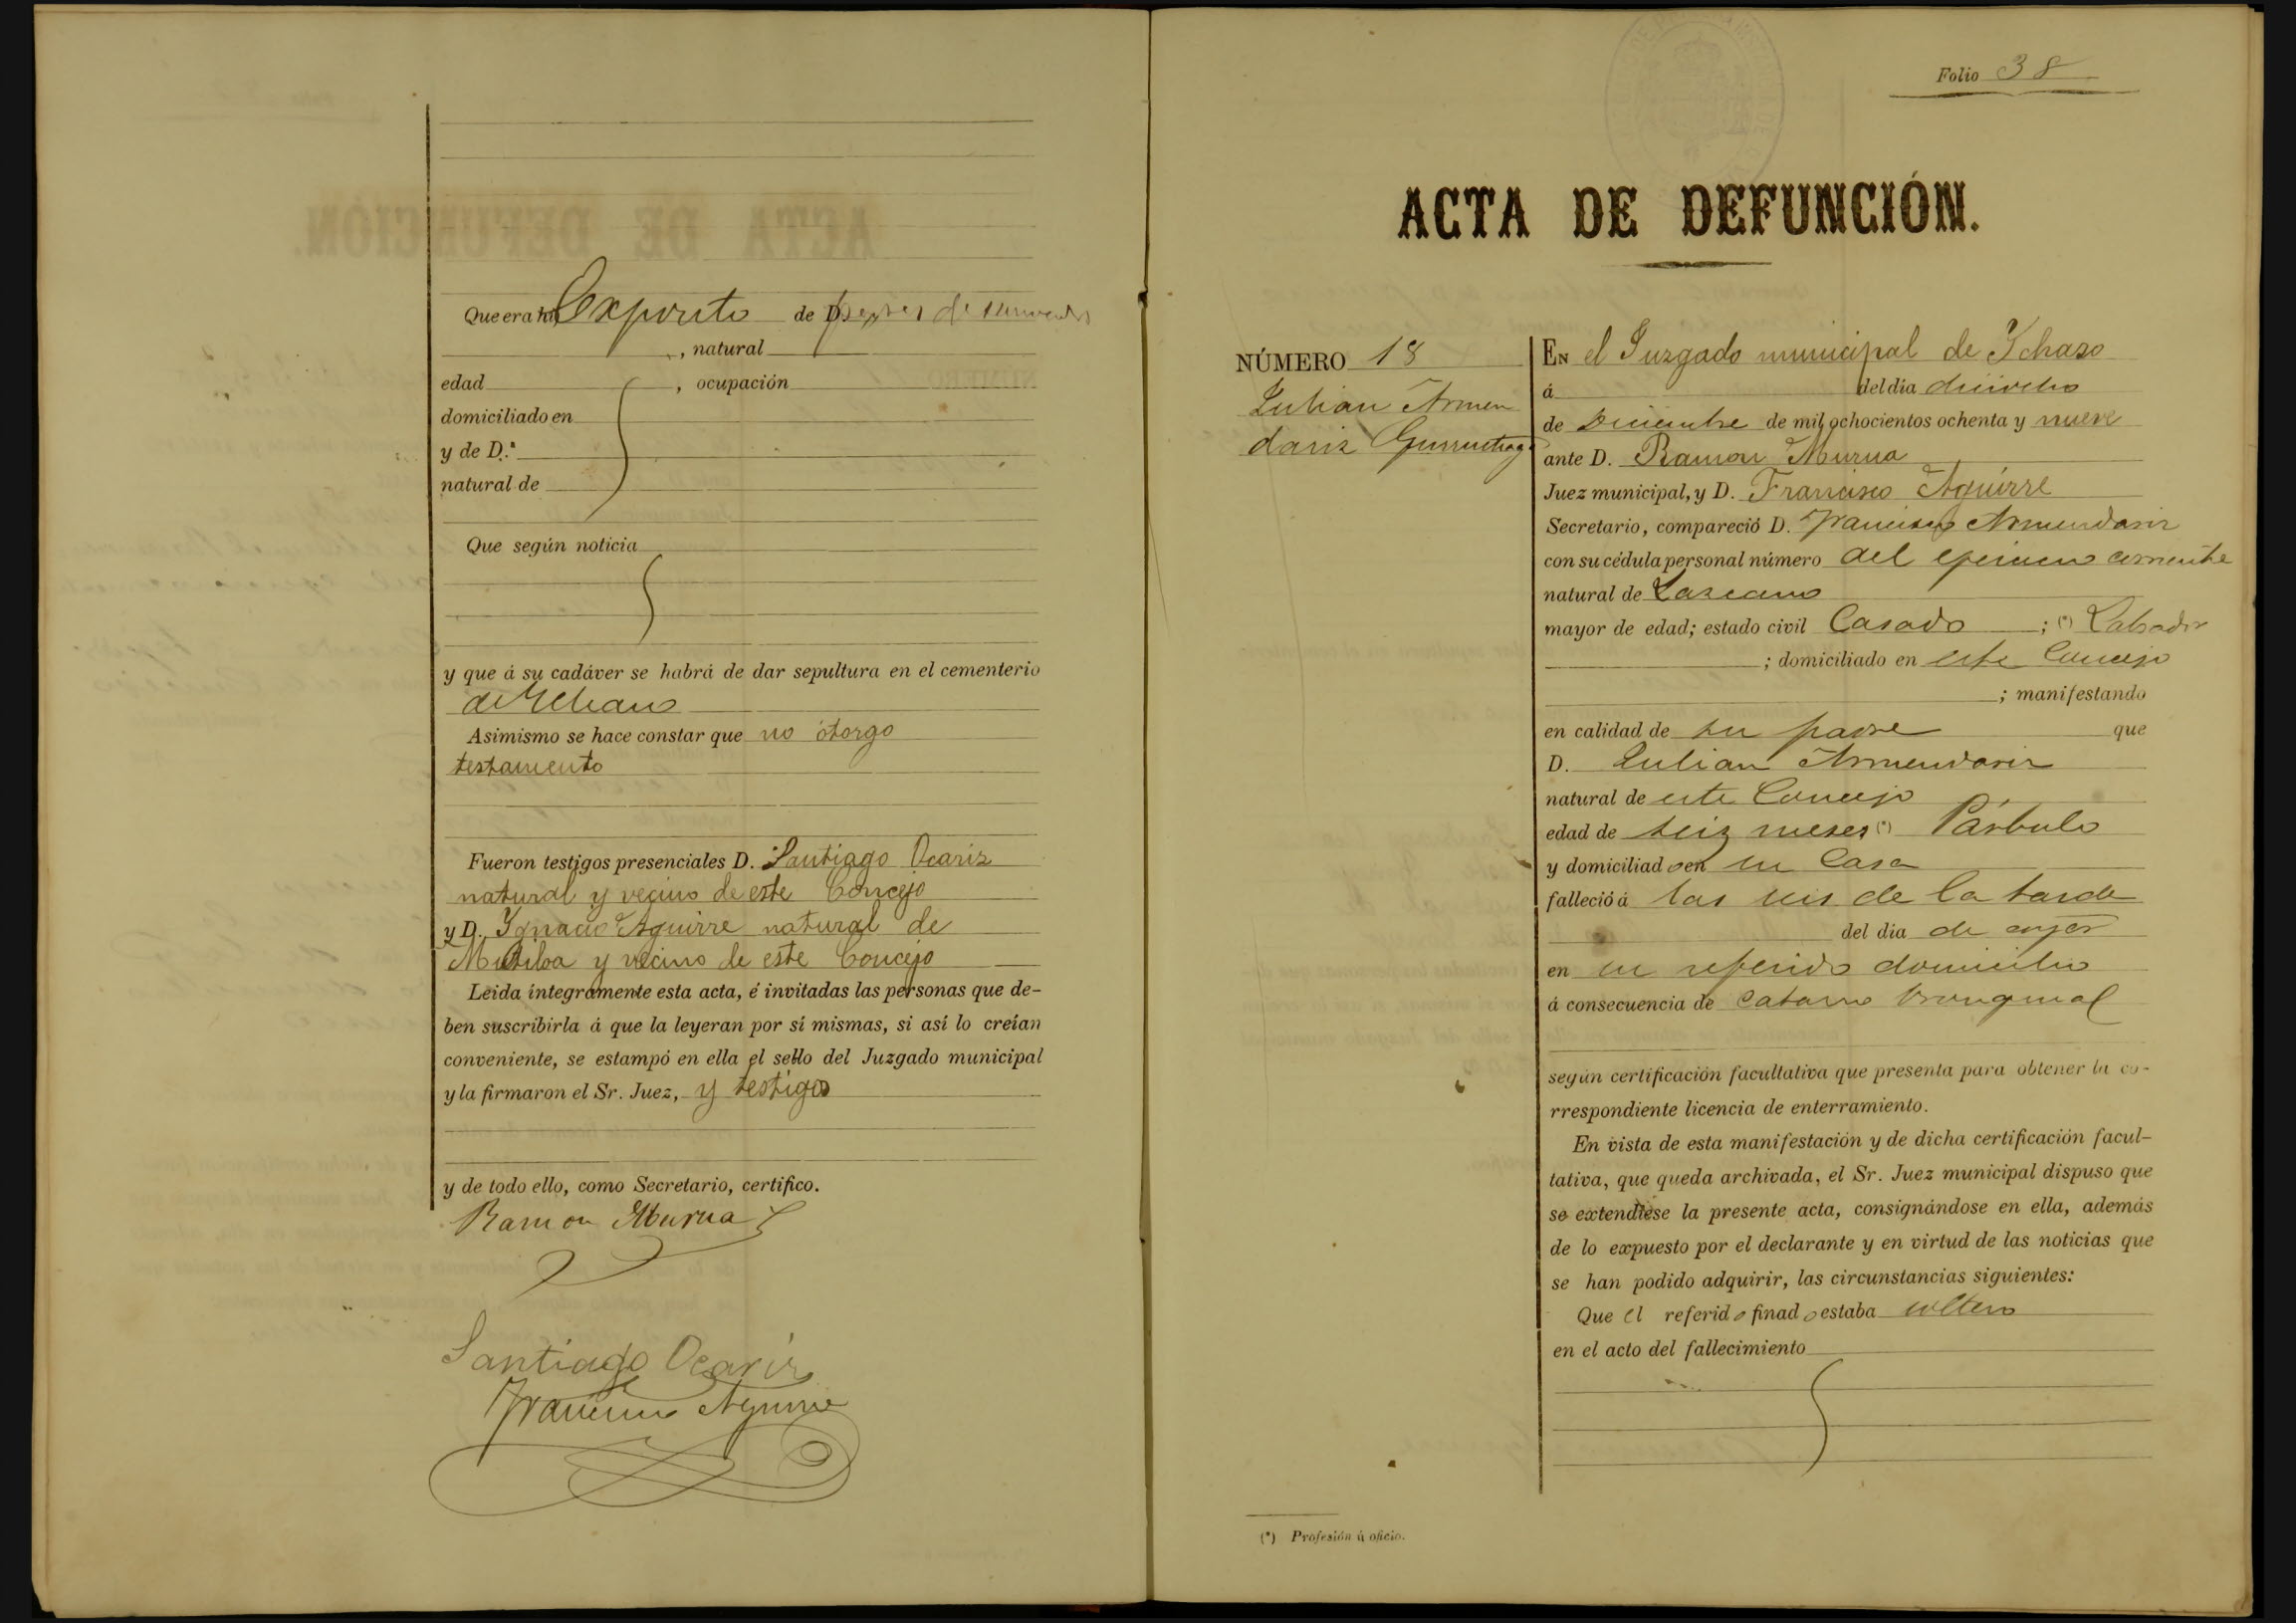 Que era hijo Exposito de D. padres desconocidos
, natural
edad , ocupación
domiciliado en
y de D.ª
natural de
Que según noticia
y que á su cadáver se habrá de dar sepultura en el cementerio
de
Asimismo se hace constar que no otorgo
testamento
Fueron testigos presenciales D. Santiago Ocariz
natural y vecino de este Concejo
y D. Ygnacio Aguirre natural de
Mutiloa y vecino de este Concejo
Leida íntegramente esta acta, é invitadas las personas que de-
ben suscribirla á que la leyeran por sí mismas, si así lo creían
conveniente, se estampó en ella el sello del Juzgado municipal
y la firmaron el Sr. Juez, y testigos
y de todo ello, como Secretario, certifico.
Ramon Murua
Santiago Ocariz
Francisco Aguirre
Folio 38
ACTA DE DEFUNCIÓN.
NÚMERO 18
Julian Armen
dariz Gurruchaga
EN el Juzgado municipal de Ychaso
á del dia dieciocho
de Diciembre de mil ochocientos ochenta y nueve
ante D. Ramon Murua
Juez municipal, y D. Francisco Aguirre
Secretario, compareció D. Francisco Armendariz
con su cédula personal número del ejercicio corriente
natural de Lazcano
mayor de edad; estado civil Casado ; (*) Labrador
; domiciliado en este Concejo
; manifestando
en calidad de su padre que
D. Julian Armendariz
natural de este Concejo
edad de seiz meses (*) Párbulo
y domiciliado en su Casa
falleció á las seis de la tarde
del dia de ayer
en su referido domicilio
á consecuencia de catarro bronquial
según certificación facultativa que presenta para obtener la co-
rrespondiente licencia de enterramiento.
En vista de esta manifestación y de dicha certificación facul-
tativa, que queda archivada, el Sr. Juez municipal dispuso que
se extendiese la presente acta, consignándose en ella, además
de lo expuesto por el declarante y en virtud de las noticias que
se han podido adquirir, las circunstancias siguientes:
Que el referido finado estaba soltero
en el acto del fallecimiento
(*) Profesión ú oficio.